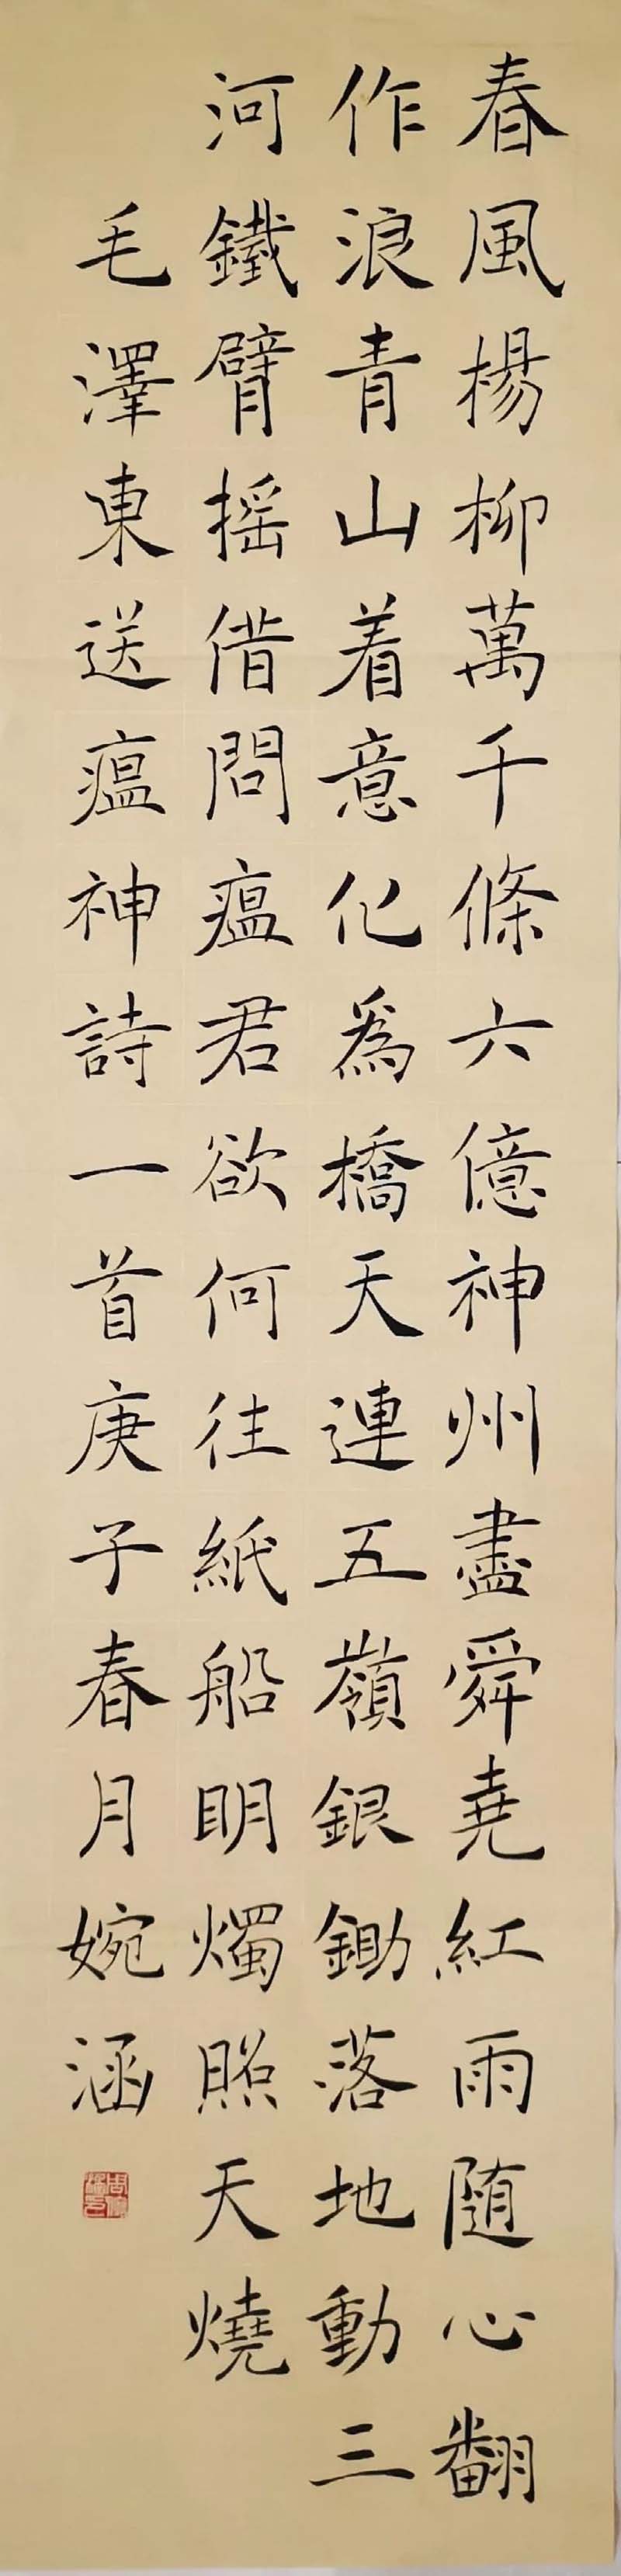 春風楊柳萬千條六億神州盡舜堯紅雨随心翻
作浪青山着意化為橋天連五嶺銀鋤落地動三
河鐵臂摇借問瘟君欲何往紙船明燭照天燒
毛澤東送瘟神詩一首庚子春月婉涵